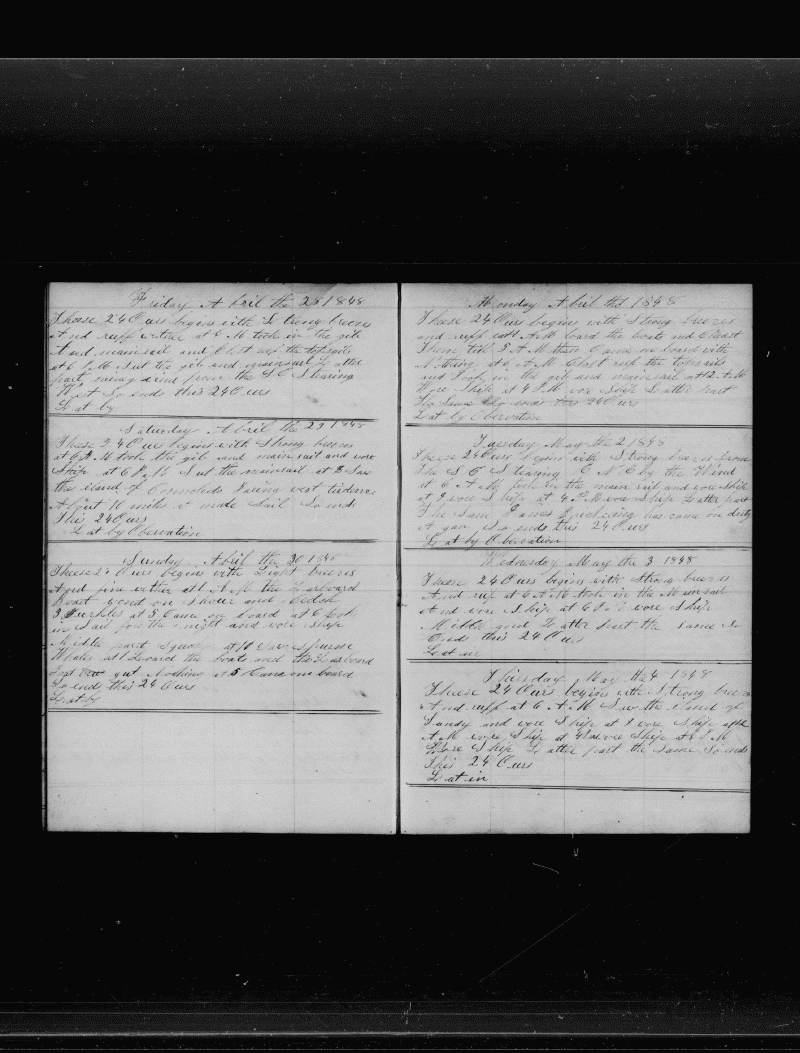 Friday Abril the 28 1848
Theese 24 Ours begins with Strong breezes
And ruff wether at 6 M took in the gib
And mainsail and Clost ruf the topsails
at 6 P M Sut the gib and mainsail Latter
part wind from the S E Stearing
West So ends this 24 Ours
Lat by
Saturday Abril the 29 1848
Theese 24 Ours begins with Strong breezes
at 6 M took the gib and mainsail and wore
Ship at 6 P M Sut the mainsail at 8 Saw
the island of baring west
About 10 miles at made Sail So ends
This 24 Ours
Lat by Obervation
Sunday Abril the 30 1848
Theese 24 Ours begins with Light breezes
And fine wether at 1 A M the Larboard
Boat went on Shour and
3 at 5 Came on board at 6 took
in Sail for the night and wore Ship
Middle part Squaly at 10 Saw Spurme
Whales at 1 Loard the boats and the Larboard
boat got Nothing at 5 Came on board
So ends this 24 Ours
Lat by
Monday Abril the 1 1848
Theese 24 Ours begins with Strong breezes
and ruff at 1 A M Loard the boats and Cheast
Them till 5 A M then Came on board with
Nothing at 6 A M Clost ruf the topsails
and in the gib and mainsail at 12 A M
Wore Ship at 4 P M wore Ship Latter part
The Same So ends this 24 Ours
Lat by Obervation
Tuesday May the 2 1848
Theese 24 Ours begins with Strong breezes from
The S E Stearing E N E by the Wind
at 6 A M took in the main sail and wore Ship
at 9 wore Ship at 4 P M wore Ship Latter part
The Same James has came on duty
A gan So ends this 24 Ours
Lat by Obervation
Wednesday May the 3 1848
Theese 24 Ours begins with Strong breezes
And ruf at 6 A M took in the Mainsail
And wore Ship at 6 P M wore Ship
Middle and Latter part the Same So
Ends this 24 Ours
Lat in
Thursday May the 4 1848
Theese 24 Ours begins with Strong breezes
And ruff at 6 A M Saw the island of
Sandy and wore Ship at 9 wore Ship at 12
A M wore Ship at 4 wore Ship at 8 P M
Wore Ship Latter part the Same So ends
This 24 Ours
Lat in